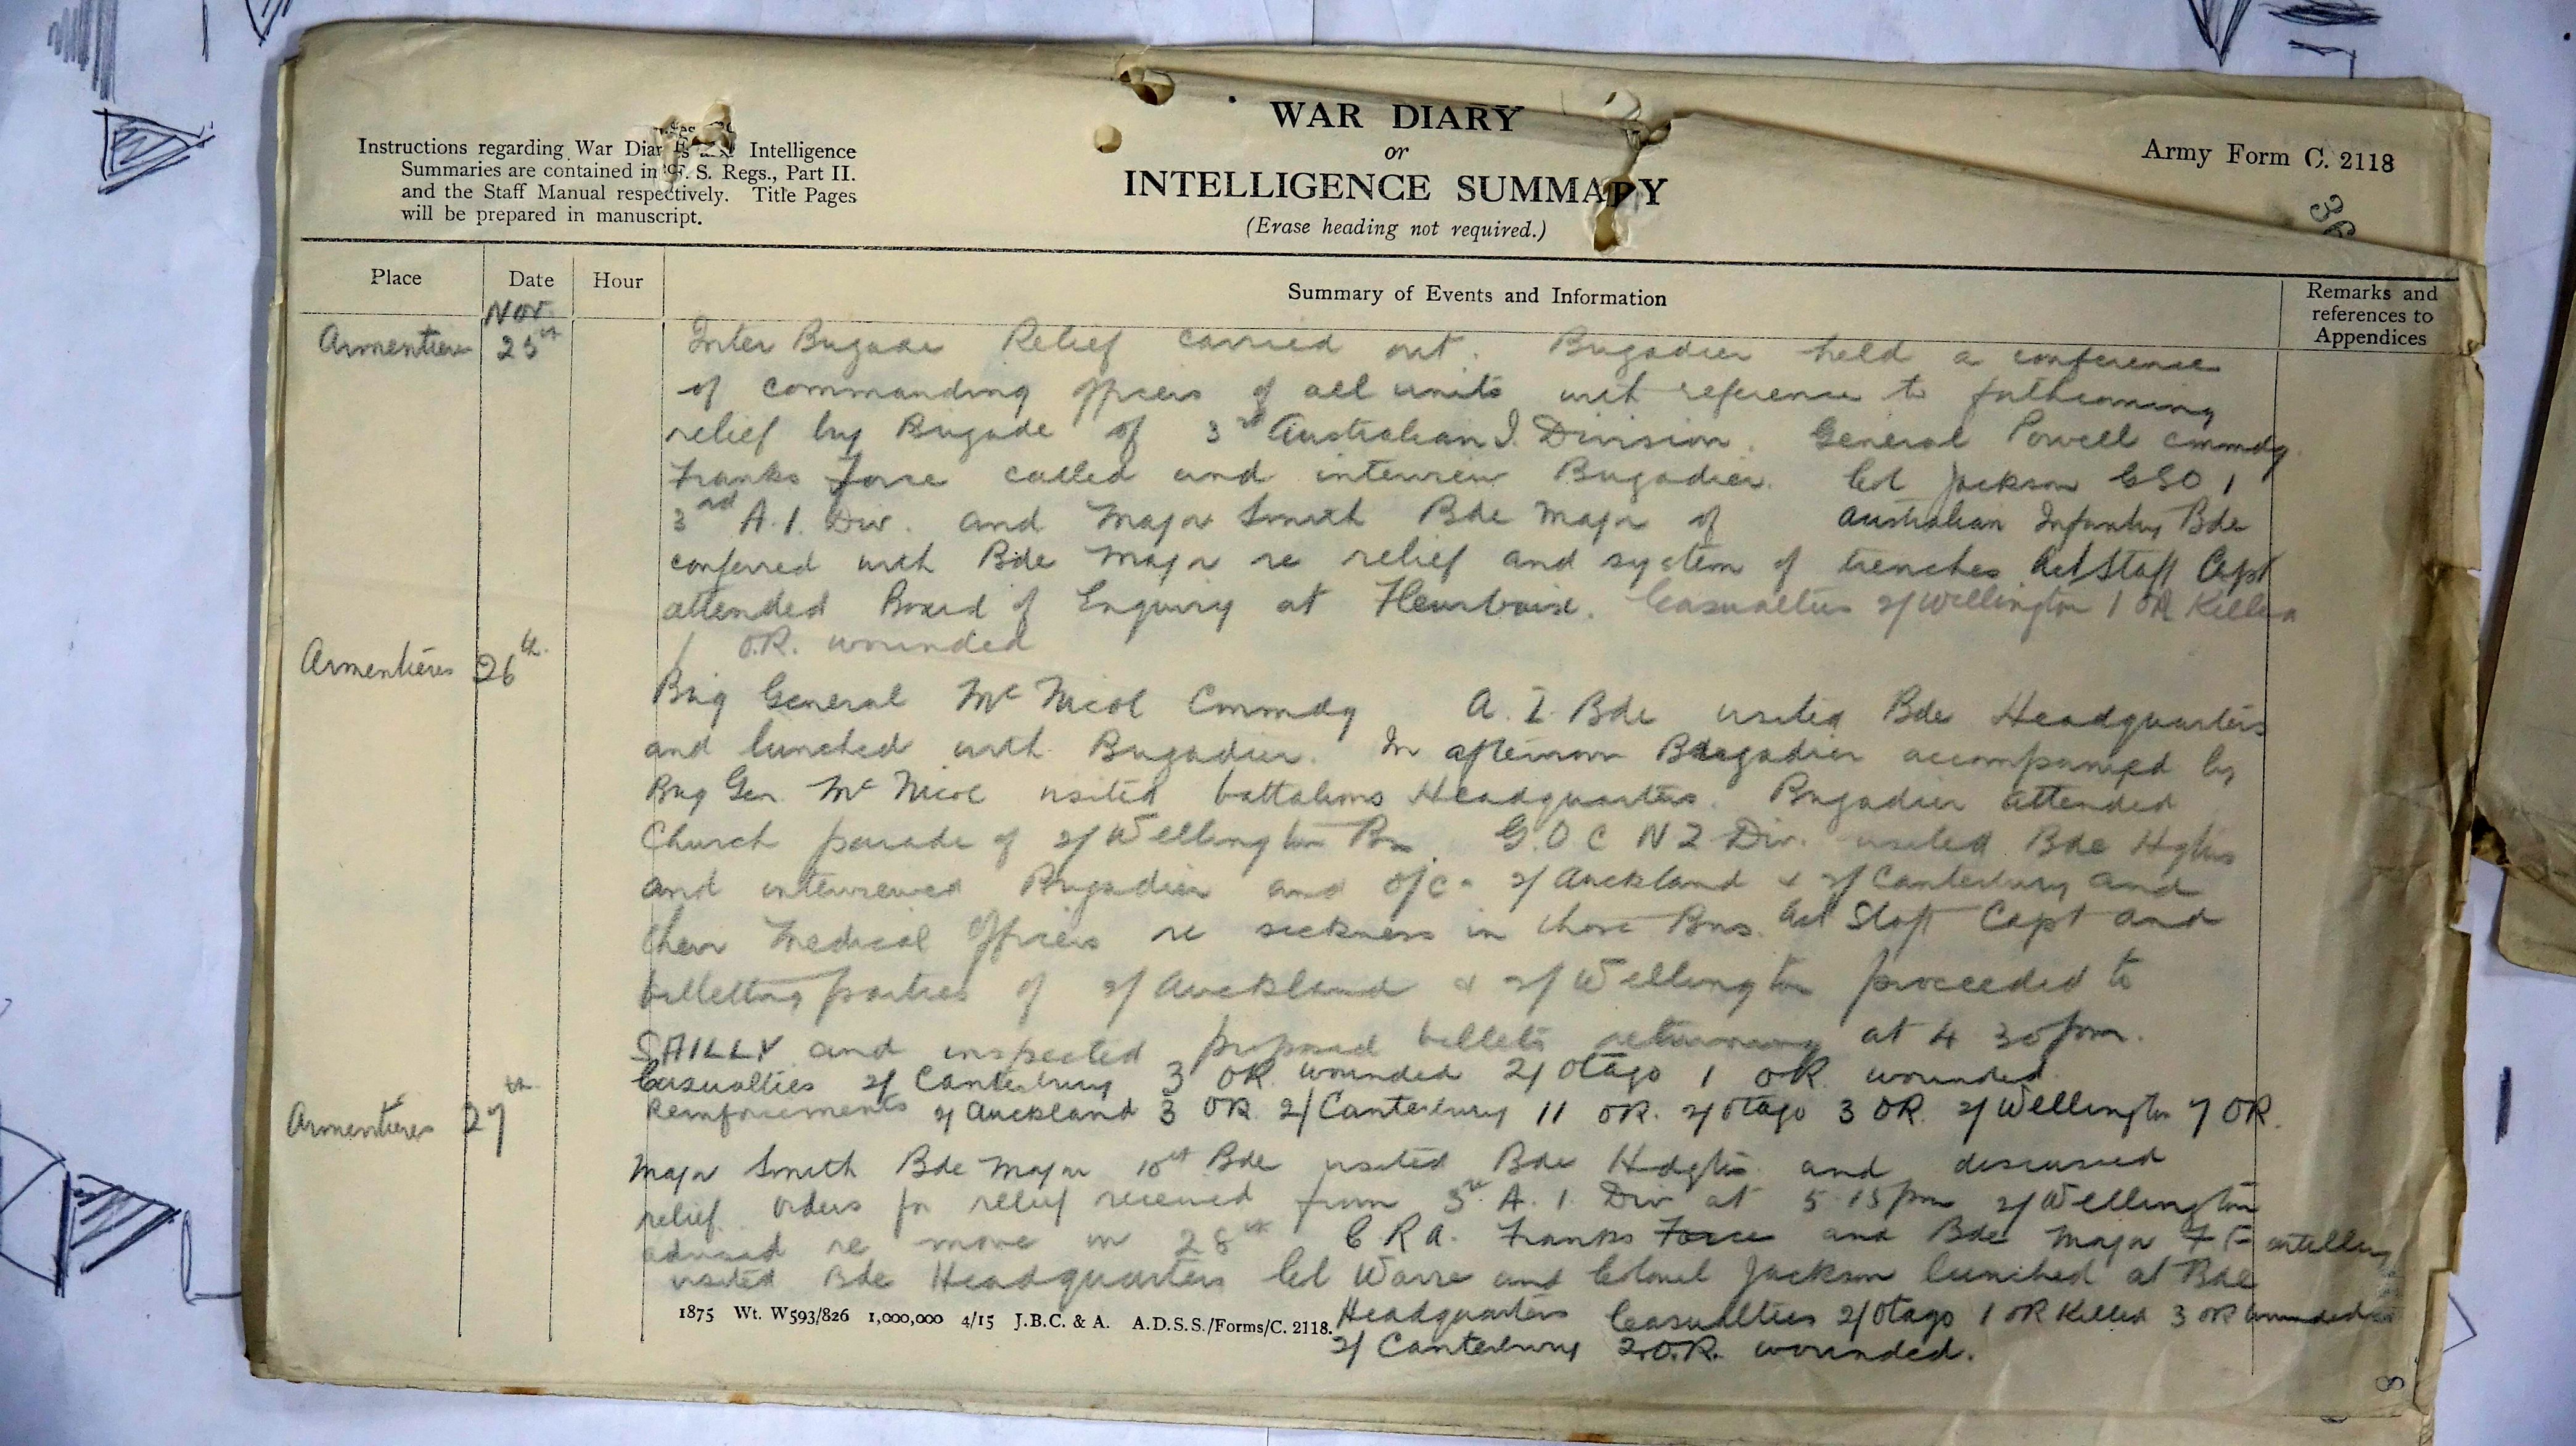 WAR DIARY
or
INTELLIGENCE SUMMARY
(Erase heading not required.)
Instructions regarding War Diaries and Intelligence
Summaries are contained in F. S. Regs., Part II.
and the Staff Manual respectively. Title Pages
will be prepared in manuscript.
Army Form C. 2118
36
Place Date Hour Summary of Events and Information Remarks and references to Appendices
Nov.
Armentieres 25th Inter Brigade Relief carried out. Brigadier held a conference
of commanding officers of all units with reference to forthcoming
relief by Brigade of 3rd Australian I. Division. General Powell cmmdg.
Franks Force called and interview Brigadier. Col Jackson GSO 1
3rd A.I. Div. and Major Smith Bde Major of Australian Infantry Bde
conferred with Bde Major re relief and system of trenches Act/Staff Capt
attended Board of Enquiry at Fleurbaix. Casualties 2/Wellington 1 OR Killed
1 O.R. wounded
Armentières 26th.
Brig General Mc Nicol Cmmdg A. I. Bde visited Bde Headquarters
and lunched with Brigadier. In afternoon Brigadier accompanied by
Brig Gen Mc Nicol visited battalions Headquarters. Brigadier attended
Church parade of 2/Wellington Bn. G.O.C N Z Div. visited Bde Hqtrs
and interviewed Brigadier and O/Cs 2/Auckland & 2/Canterbury and
their Medical Officers re sickness in those Bns. Act Staff Capt and
billetting parties of 2/Auckland & 2/Wellington proceeded to
SAILLY and inspected proposed billets returning at 4 30 pm.
Casualties 2/Canterbury 3 OR. wounded 2/Otago 1 OR. wounded.
Reinforcements 2/Auckland 3 OR. 2/Canterbury 11 OR. 2/Otago 3 OR. 2/Wellington 7 OR.
Armentières 27th
Major Smith Bde Major 10th Bde visited Bde Hdqtrs and discussed
relief. Orders for relief received from 3rd A. I. Div at 5.15 pm 2/Wellington
advised re move on 28th C R A. Franks Force and Bde Major F F artillery
visited Bde Headquarters Col Warre and Colonel Jackson lunched at Bde
Headquarters Casualties 2/Otago 1 OR Killed 3 OR wounded
2/Canterbury 2 O.R. wounded.
1875 Wt. W593/826 1,000,000 4/15 J.B.C. & A. A.D.S.S./Forms/C. 2118.
8